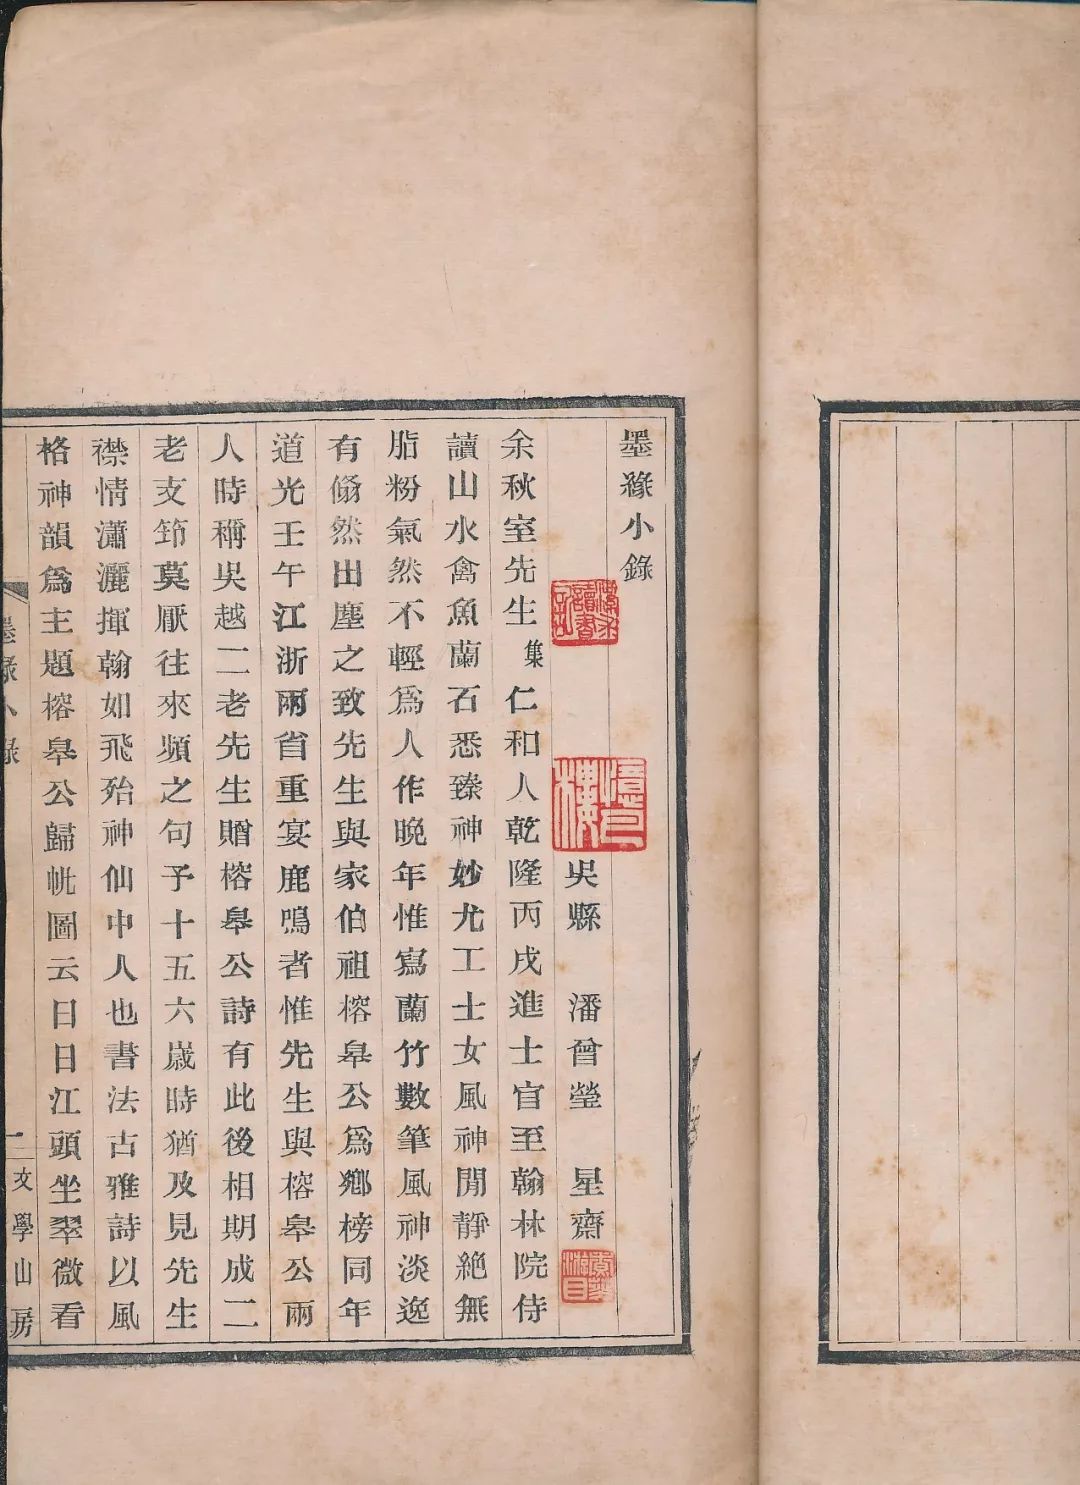 墨緣小錄
吳縣 潘曾瑩 星齋
余秋室先生集仁和人乾隆丙戌進士官至翰林院侍
讀山水禽魚蘭石悉臻神妙尤工士女風神閒靜絕無
脂粉氣然不輕爲人作晚年惟寫蘭竹數筆風神淡逸
有翛然出塵之致先生與家伯祖榕皋公爲鄉榜同年
道光壬午江浙兩省重宴鹿鳴者惟先生與榕皋公兩
人時稱吳越二老先生贈榕皋公詩有此後相期成二
老支筇莫厭往來頻之句予十五六歲時猶及見先生
襟情瀟灑揮翰如飛殆神仙中人也書法古雅詩以風
格神韻爲主題榕皋公歸帆圖云日日江頭坐翠微看
墨緣小錄
一
文學山房